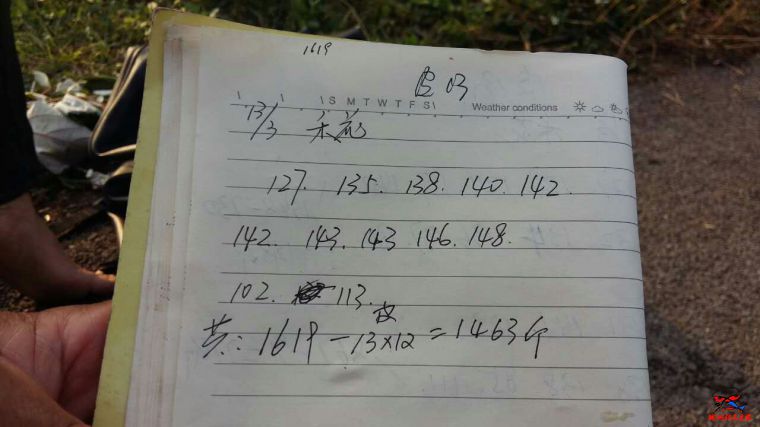 1619
S M T W T F S Weather conditions
13/3
127. 135. 138. 140. 142.
142. 143. 143 146. 148.
102. 113.
皮
共: 1619 - 13×12 = 1463